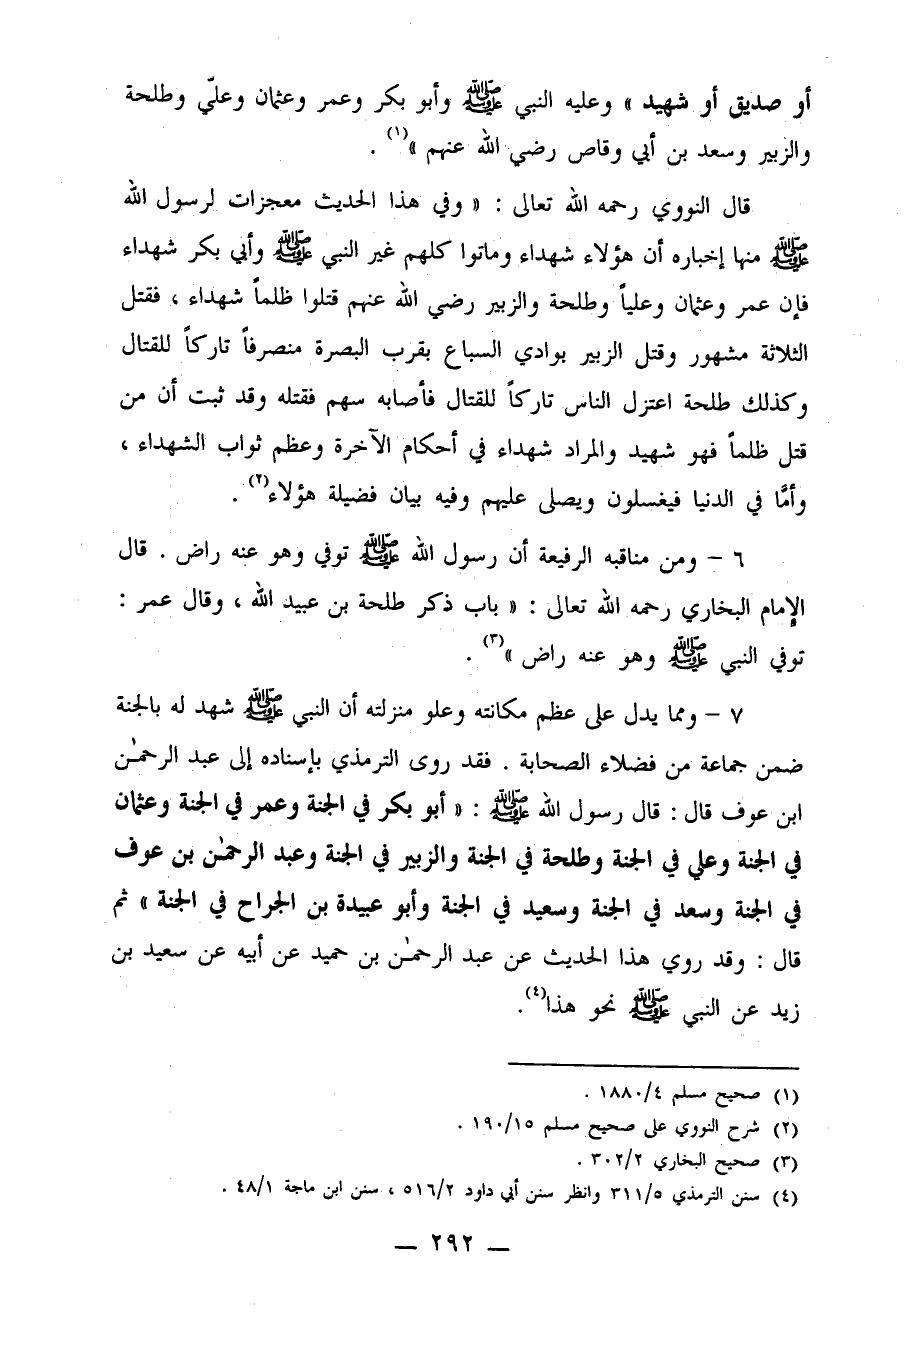 أو صديق أو شهيد » وعليه النبي ﷺ وأبو بكر وعمر وعثمان وعليّ وطلحة
والزبير وسعد بن أبي وقاص رضي الله عنهم »(١) .
قال النووي رحمه الله تعالى : « وفي هذا الحديث معجزات لرسول الله
ﷺ منها إخباره أن هؤلاء شهداء وماتوا كلهم غير النبي ﷺ وأبي بكر شهداء
فإن عمر وعثمان وعلياً وطلحة والزبير رضي الله عنهم قتلوا ظلماً شهداء ، فقتل
الثلاثة مشهور وقتل الزبير بوادي السباع بقرب البصرة منصرفاً تاركاً للقتال
وكذلك طلحة اعتزل الناس تاركاً للقتال فأصابه سهم فقتله وقد ثبت أن من
قتل ظلماً فهو شهيد والمراد شهداء في أحكام الآخرة وعظم ثواب الشهداء ،
وأمَّا في الدنيا فيغسلون ويصلى عليهم وفيه بيان فضيلة هؤلاء(٢) .
٦ – ومن مناقبه الرفيعة أن رسول الله ﷺ توفي وهو عنه راض . قال
الإمام البخاري رحمه الله تعالى : « باب ذكر طلحة بن عبيد الله ، وقال عمر :
توفي النبي ﷺ وهو عنه راض »(٣) .
٧ – ومما يدل على عظم مكانته وعلو منزلته أن النبي ﷺ شهد له بالجنة
ضمن جماعة من فضلاء الصحابة . فقد روى الترمذي بإسناده إلى عبد الرحمٰن
ابن عوف قال : قال رسول الله ﷺ : « أبو بكر في الجنة وعمر في الجنة وعثمان
في الجنة وعلي في الجنة وطلحة في الجنة والزبير في الجنة وعبد الرحمٰن بن عوف
في الجنة وسعد في الجنة وسعيد في الجنة وأبو عبيدة بن الجراح في الجنة » ثم
قال : وقد روي هذا الحديث عن عبد الرحمٰن بن حميد عن أبيه عن سعيد بن
زيد عن النبي ﷺ نحو هذا(٤).
(١) صحيح مسلم ١٨٨٠/٤ .
(٢) شرح النووي على صحيح مسلم ١٩٠/١٥ .
(٣) صحيح البخاري ٣٠٢/٢ .
(٤) سنن الترمذي ٣١١/٥ وانظر سنن أبي داود ٥١٦/٢ ، سنن ابن ماجة ٤٨/١ .
– ٢٩٢ –